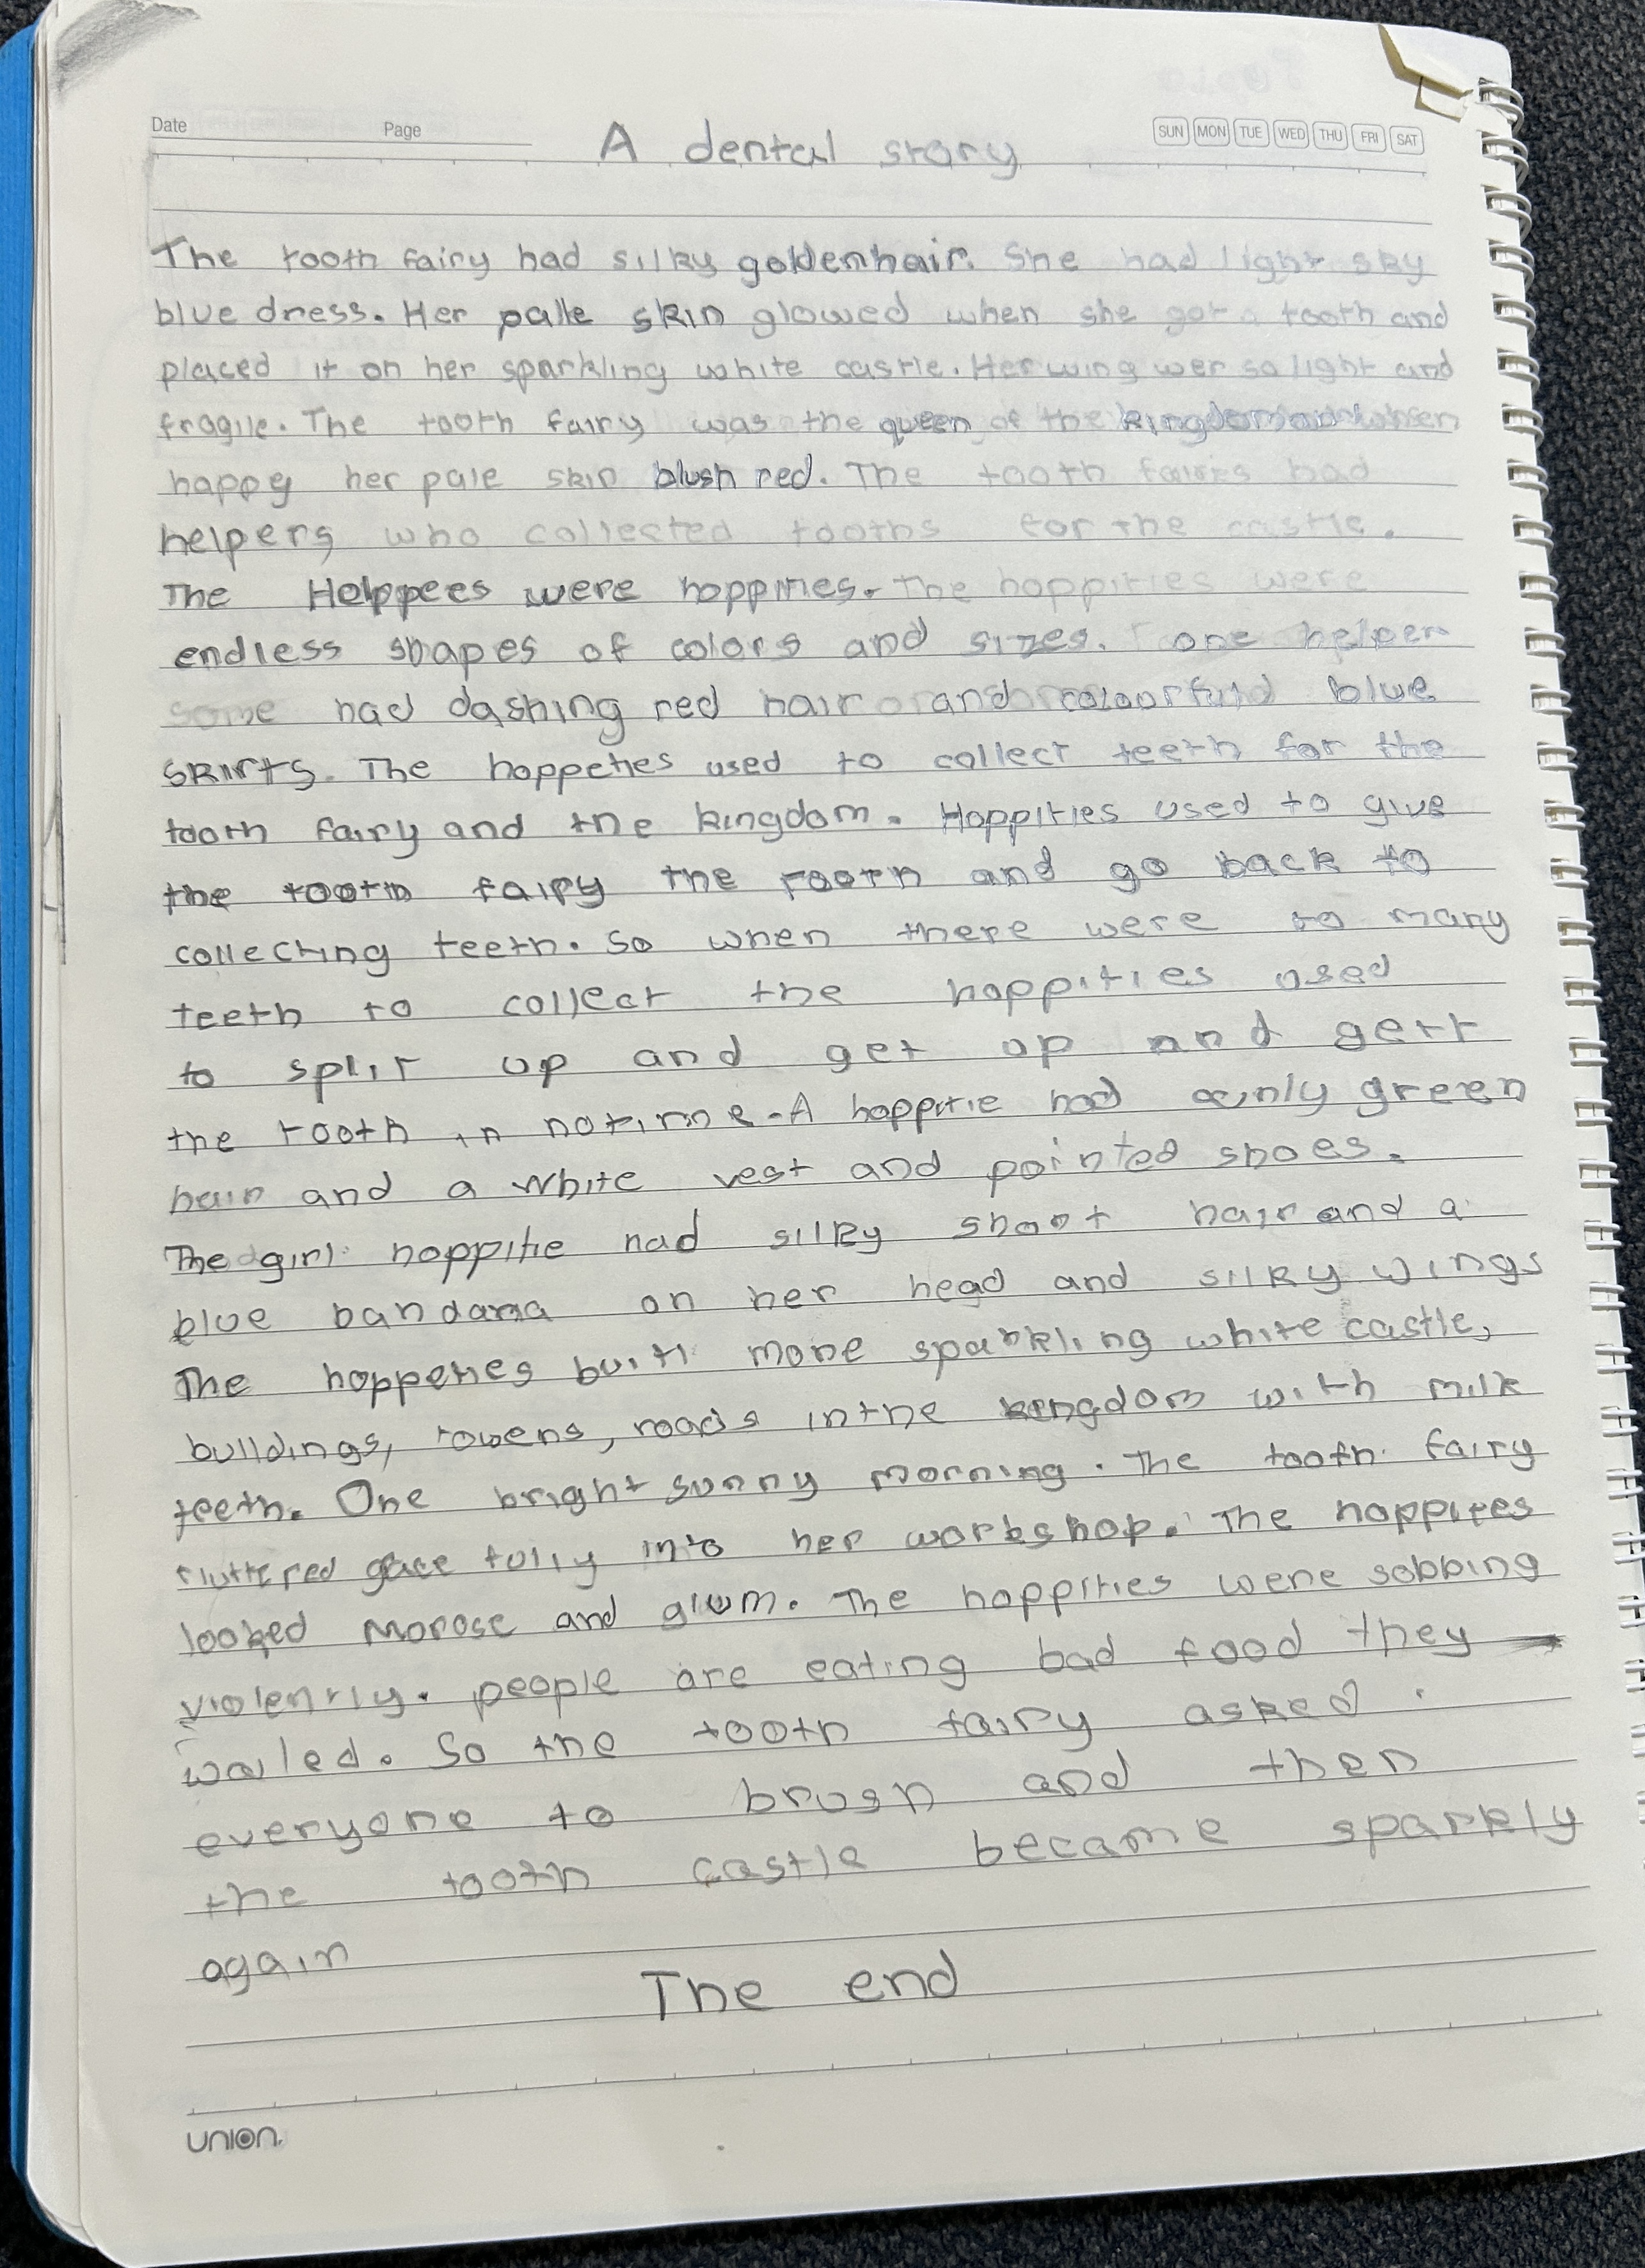 Date Page SUN MON TUE WED THU FRI SAT
A dental story
The tooth fairy had silky golden hair. She had light sky
blue dress. Her pale skin glowed when she got a tooth and
placed it on her sparkling white castle. Her wing wer so light and
fragile. The tooth fairy was the queen of the kingdom when
happy her pale skin blush red. The tooth fairies had
helpers who collected tooths for the castle.
The Helppees were hoppities. The hoppities were
endless shapes of colors and sizes. one helper
some had dashing red hair and colourful blue
skirts. The hoppeties used to collect teeth for the
tooth fairy and the kingdom. Hoppities used to give
the tooth fairy the tooth and go back to
collecting teeth. So when there were to many
teeth to collect the hoppities used
to split up and get up and gett
the tooth in notime. A hoppitie had green
hair and a white vest and pointed shoes.
The girl hoppitie had silky short hair and a
blue bandana on her head and silky wings
The hoppeties built more sparkling white castle,
buildings, towers, roads inthe kingdom with milk
teeth. One bright sunny morning. The tooth fairy
fluttered gracefully into her workshop. The hoppities
looked morose and glum. The hoppities were sobbing
violently. people are eating bad food they
wailed. So the tooth fairy asked
everyone to brush and then
the tooth castle became sparkly
again
The end
UNION